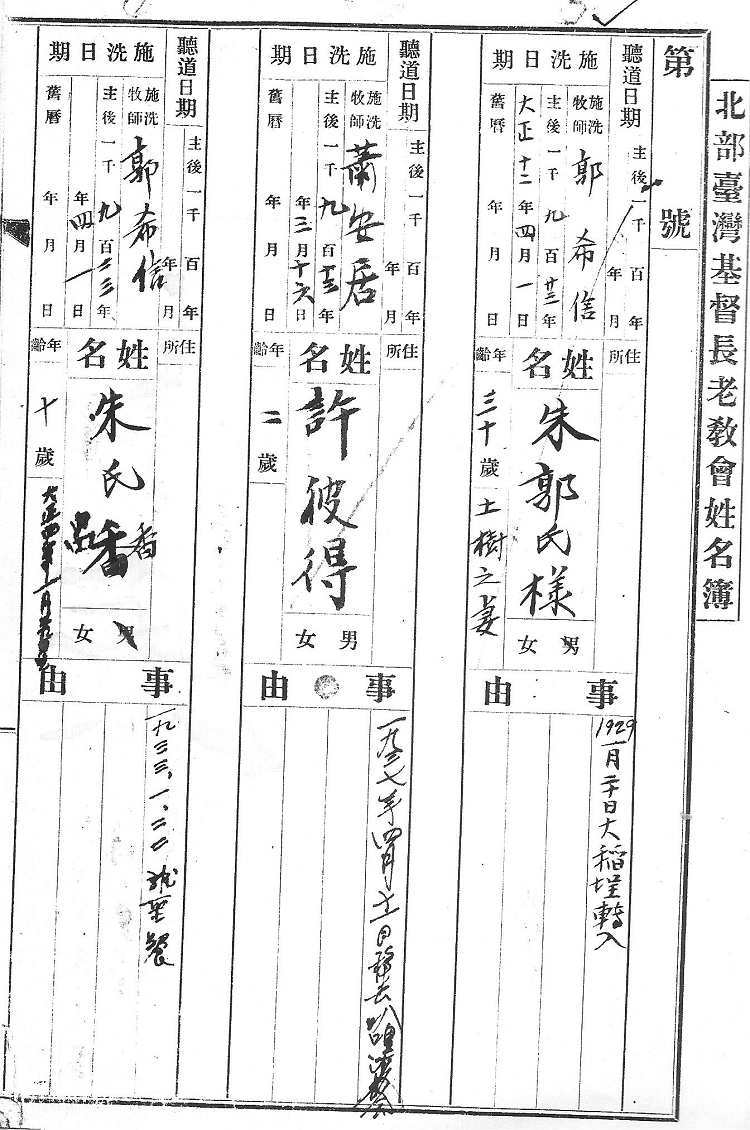 北部臺灣基督長老教會姓名簿
第 號
聽道日期 主後一千 百 年 年 月
施洗日期
施洗牧師 郭希信
主後一千九百廿三年
大正十二年四月一日
舊曆 年 月 日
住所
姓名 朱郭氏樣
男 女
年齡 三十歲 土樹之妻
事由
1929
一月二十日大稻埕轉入
聽道日期 主後一千 百 年 年 月
施洗日期
施洗牧師 蕭安居
主後一千九百十三年
年三月十六日
舊曆 年 月 日
住所
姓名 許彼得
男 女
年齡 二歲
事由
一九三七年四月十一日移去八里
聽道日期 主後一千 百 年 年 月
施洗日期
施洗牧師 郭希信
主後一千九百二三年
年四月一日
舊曆 年 月 日
住所
姓名 朱氏香
香
男 女
年齡 十歲
事由
一九三三、一、二二 聖餐